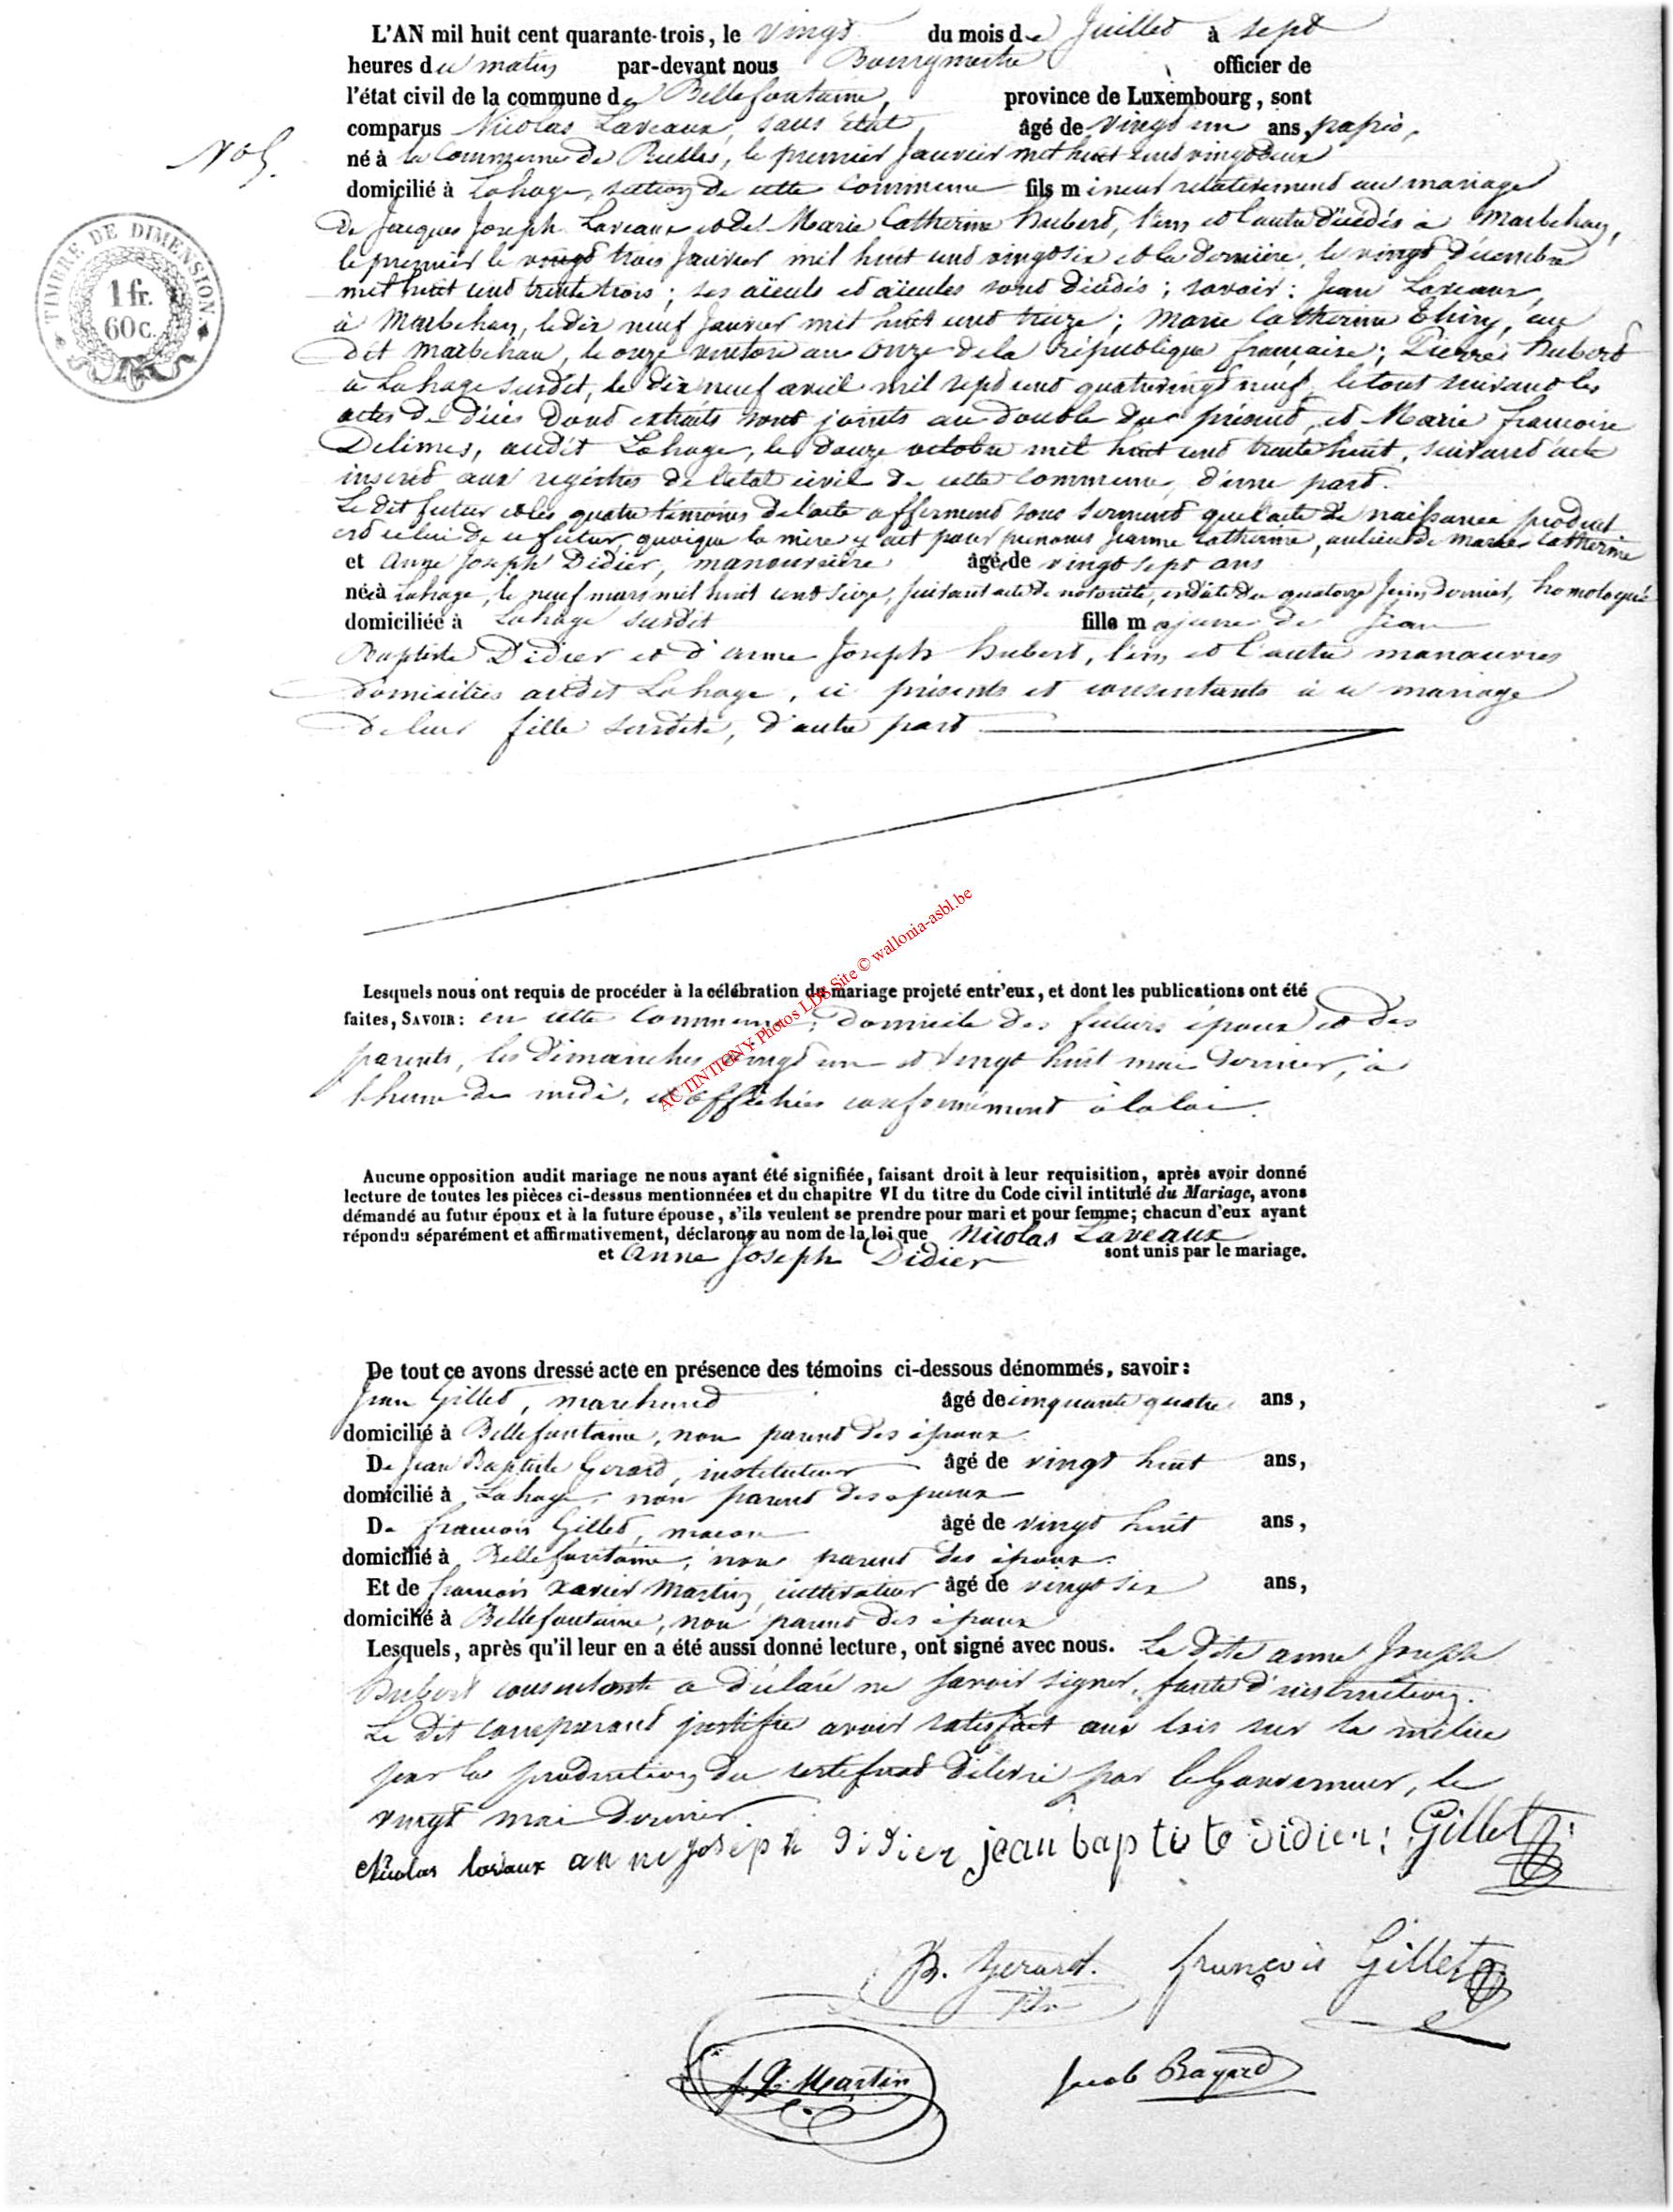 L'AN mil huit cent quarante-trois, le vingt du mois de Juillet à sept
heures du matin par-devant nous Bourgmestre officier de
l'état civil de la commune de Bellefontaine, province de Luxembourg, sont
comparus Nicolas Laveaux, sans état, âgé de vingt un ans passés,
No 5.
né à la Commune de Rulles, le premier Janvier mil huit cent vingt deux
domicilié à Lahage, section de cette Commune fils mineur relativement au mariage
de Jacques Joseph Laveaux et de Marie Catherine Hubert, l'un et l'autre décédés à Marbehay,
le premier le vingt trois Janvier mil huit cent vingt six et la dernière, le vingt Décembre
mil huit cent trente trois; ses aïeuls et aïeules sont décédés; savoir: Jean Laveaux,
à Marbehay, le dix neuf Janvier mil huit cent treize; Marie Catherine Thiry, au
dit Marbehau, le onze ventose an onze de la république française; Pierre Hubert
à Lahage susdit, le dix neuf avril mil sept cent quatrevingt neuf, le tout suivant les
actes de décès dont extraits sont joints au double du présent, et Marie françoise
Delimes, audit Lahage, le douze octobre mil huit cent trente huit, suivant acte
inscrit aux registres de l'état civil de cette Commune, d'une part.
Le dit futur et les quatre témoins de l'acte affirment sous serment que l'acte de naissance produit
est celui de ce futur quoique la mère y ait pour prénoms Jeanne Catherine, au lieu de Marie Catherine
et Anne Joseph Didier, manouvrière âgée de vingt sept ans
née à Lahage, le neuf mars mil huit cent seize, suivant acte de notoriété, en date du quatorze Juin dernier, homologué
domiciliée à Lahage susdit fille majeure de Jean
Baptiste Didier et d'Anne Joseph Hubert, l'un et l'autre manœuvres
domiciliés audit Lahage, ici présents et consentants à ce mariage
de leur fille susdite, d'autre part
Lesquels nous ont requis de procéder à la célébration du mariage projeté entr'eux, et dont les publications ont été
faites, SAVOIR: en cette Commune, domicile des futurs époux et des
parents, les dimanches vingt un et vingt huit mai dernier, à
l'heure de midi, et affichées conformément à la loi.
Aucune opposition audit mariage ne nous ayant été signifiée, faisant droit à leur requisition, après avoir donné
lecture de toutes les pièces ci-dessus mentionnées et du chapitre VI du titre du Code civil intitulé du Mariage, avons
démandé au futur époux et à la future épouse, s'ils veulent se prendre pour mari et pour femme; chacun d'eux ayant
répondu séparément et affirmativement, déclarons au nom de la loi que Nicolas Laveaux
et Anne Joseph Didier sont unis par le mariage.
De tout ce avons dressé acte en présence des témoins ci-dessous dénommés, savoir:
Jean Gillet, marchand âgé de cinquante quatre ans,
domicilié à Bellefontaine, non parent des époux
De Jean Baptiste Gerard, instituteur âgé de vingt huit ans,
domicilié à Lahage, non parent des époux
De francois Gillet, macon âgé de vingt huit ans,
domicilié à Bellefontaine, non parent des époux.
Et de francois Xavier Martin, cultivateur âgé de vingt six ans,
domicilié à Bellefontaine, non parent des époux
Lesquels, après qu'il leur en a été aussi donné lecture, ont signé avec nous. La dite anne Joseph
Hubert consentante a déclaré ne savoir signer, faute d'instruction.
Le dit comparant justifie avoir satisfait aux lois sur la milice
par la production du certificat délivré par le Gouverneur, le
vingt mai dernier.
Nicolas lavaux anne joseph didier jean baptiste didier; Gillet
B. Gerard. françois Gillet
fils
f. X. Martin Jacob Bayard
TIMBRE DE DIMENSION.
1 fr.
60 c.
AC TINTIGNY Photos LDS Site © wallonia-asbl.be